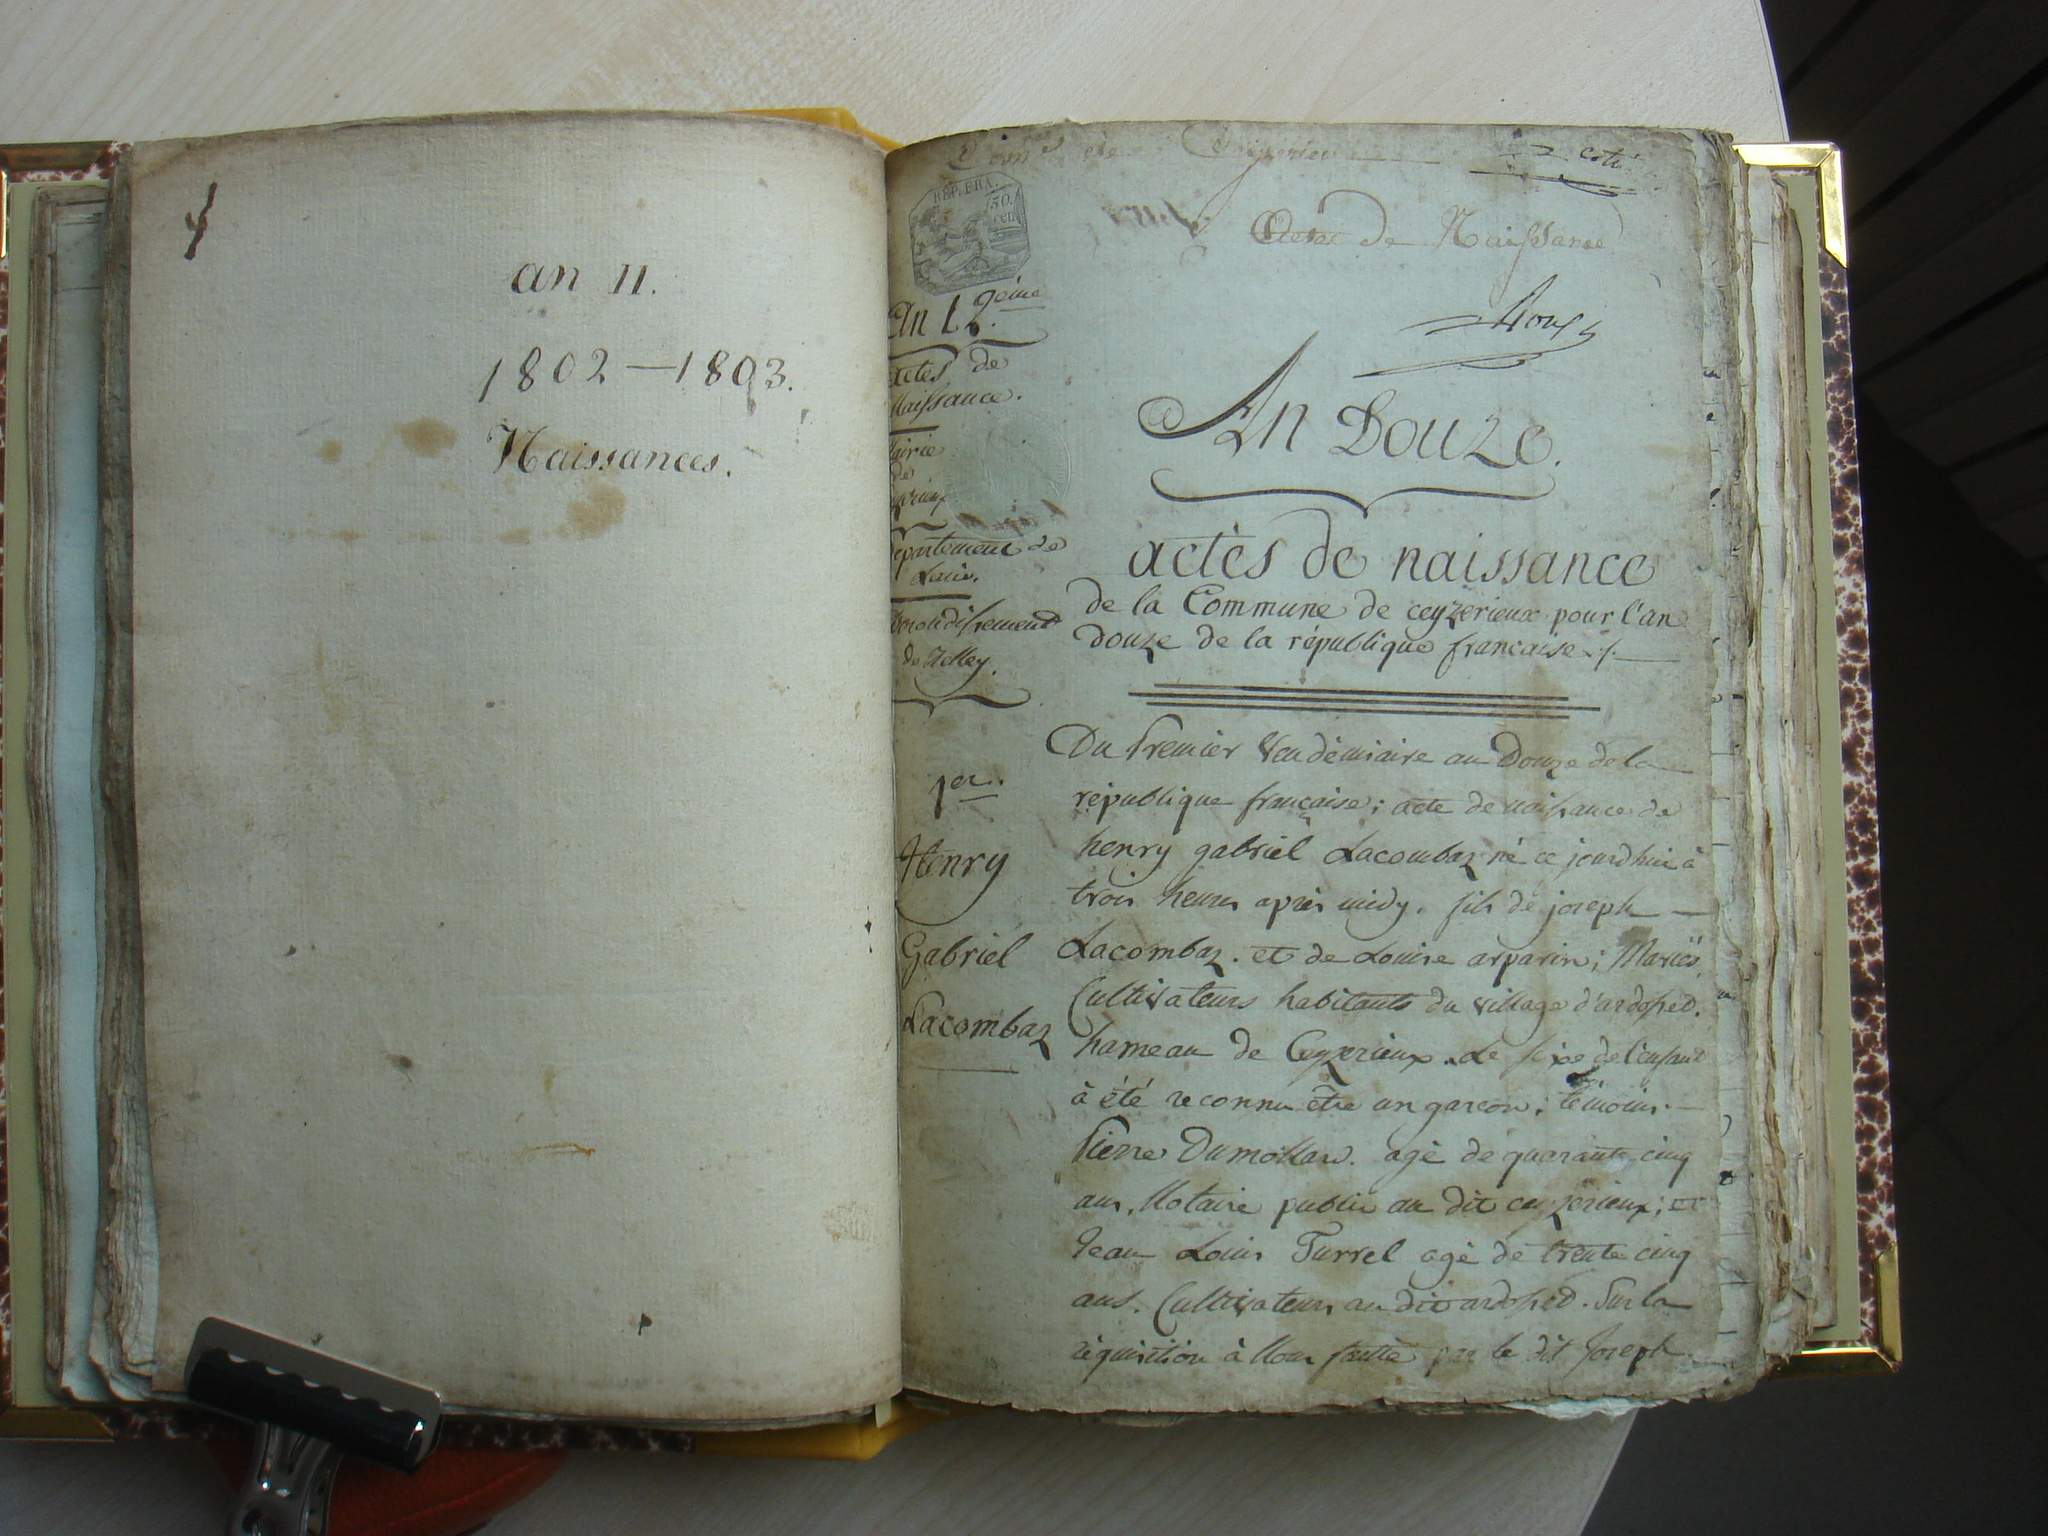 an 11.
1802 — 1803.
Naissances.
coté
Acte de Naissance
REP. FRA.
50.
cen
An 12.eme
actes de
Naissance.
Mairie
de
Département de
Lain.
Arrondissement
de Belley.
An Douze.
actes de naissance
de la Commune de ceyzerieux pour l'an
douze de la république francaise ./.
1er.
Henry
Gabriel
Lacombaz
Du Premier Vendémiaire an Douze de la
république française; acte de naissance de
henry gabriel Lacombaz né ce jourdhui à
trois heures après midy. fils de joseph
Lacombaz. et de Louise arparin; Mariés
Cultivateurs habitants du village d'ardosset.
hameau de Ceyzerieux. Le sexe de l'enfant
à été reconnu être un garcon; témoins
Pierre Dumollard. agé de quarante cinq
ans, Notaire public au dit ceyzerieux; et
Jean Louis Turrel agé de trente cinq
ans. Cultivateurs au dit ardosset. Sur la
réquisition à Nous faitte par le dit Joseph